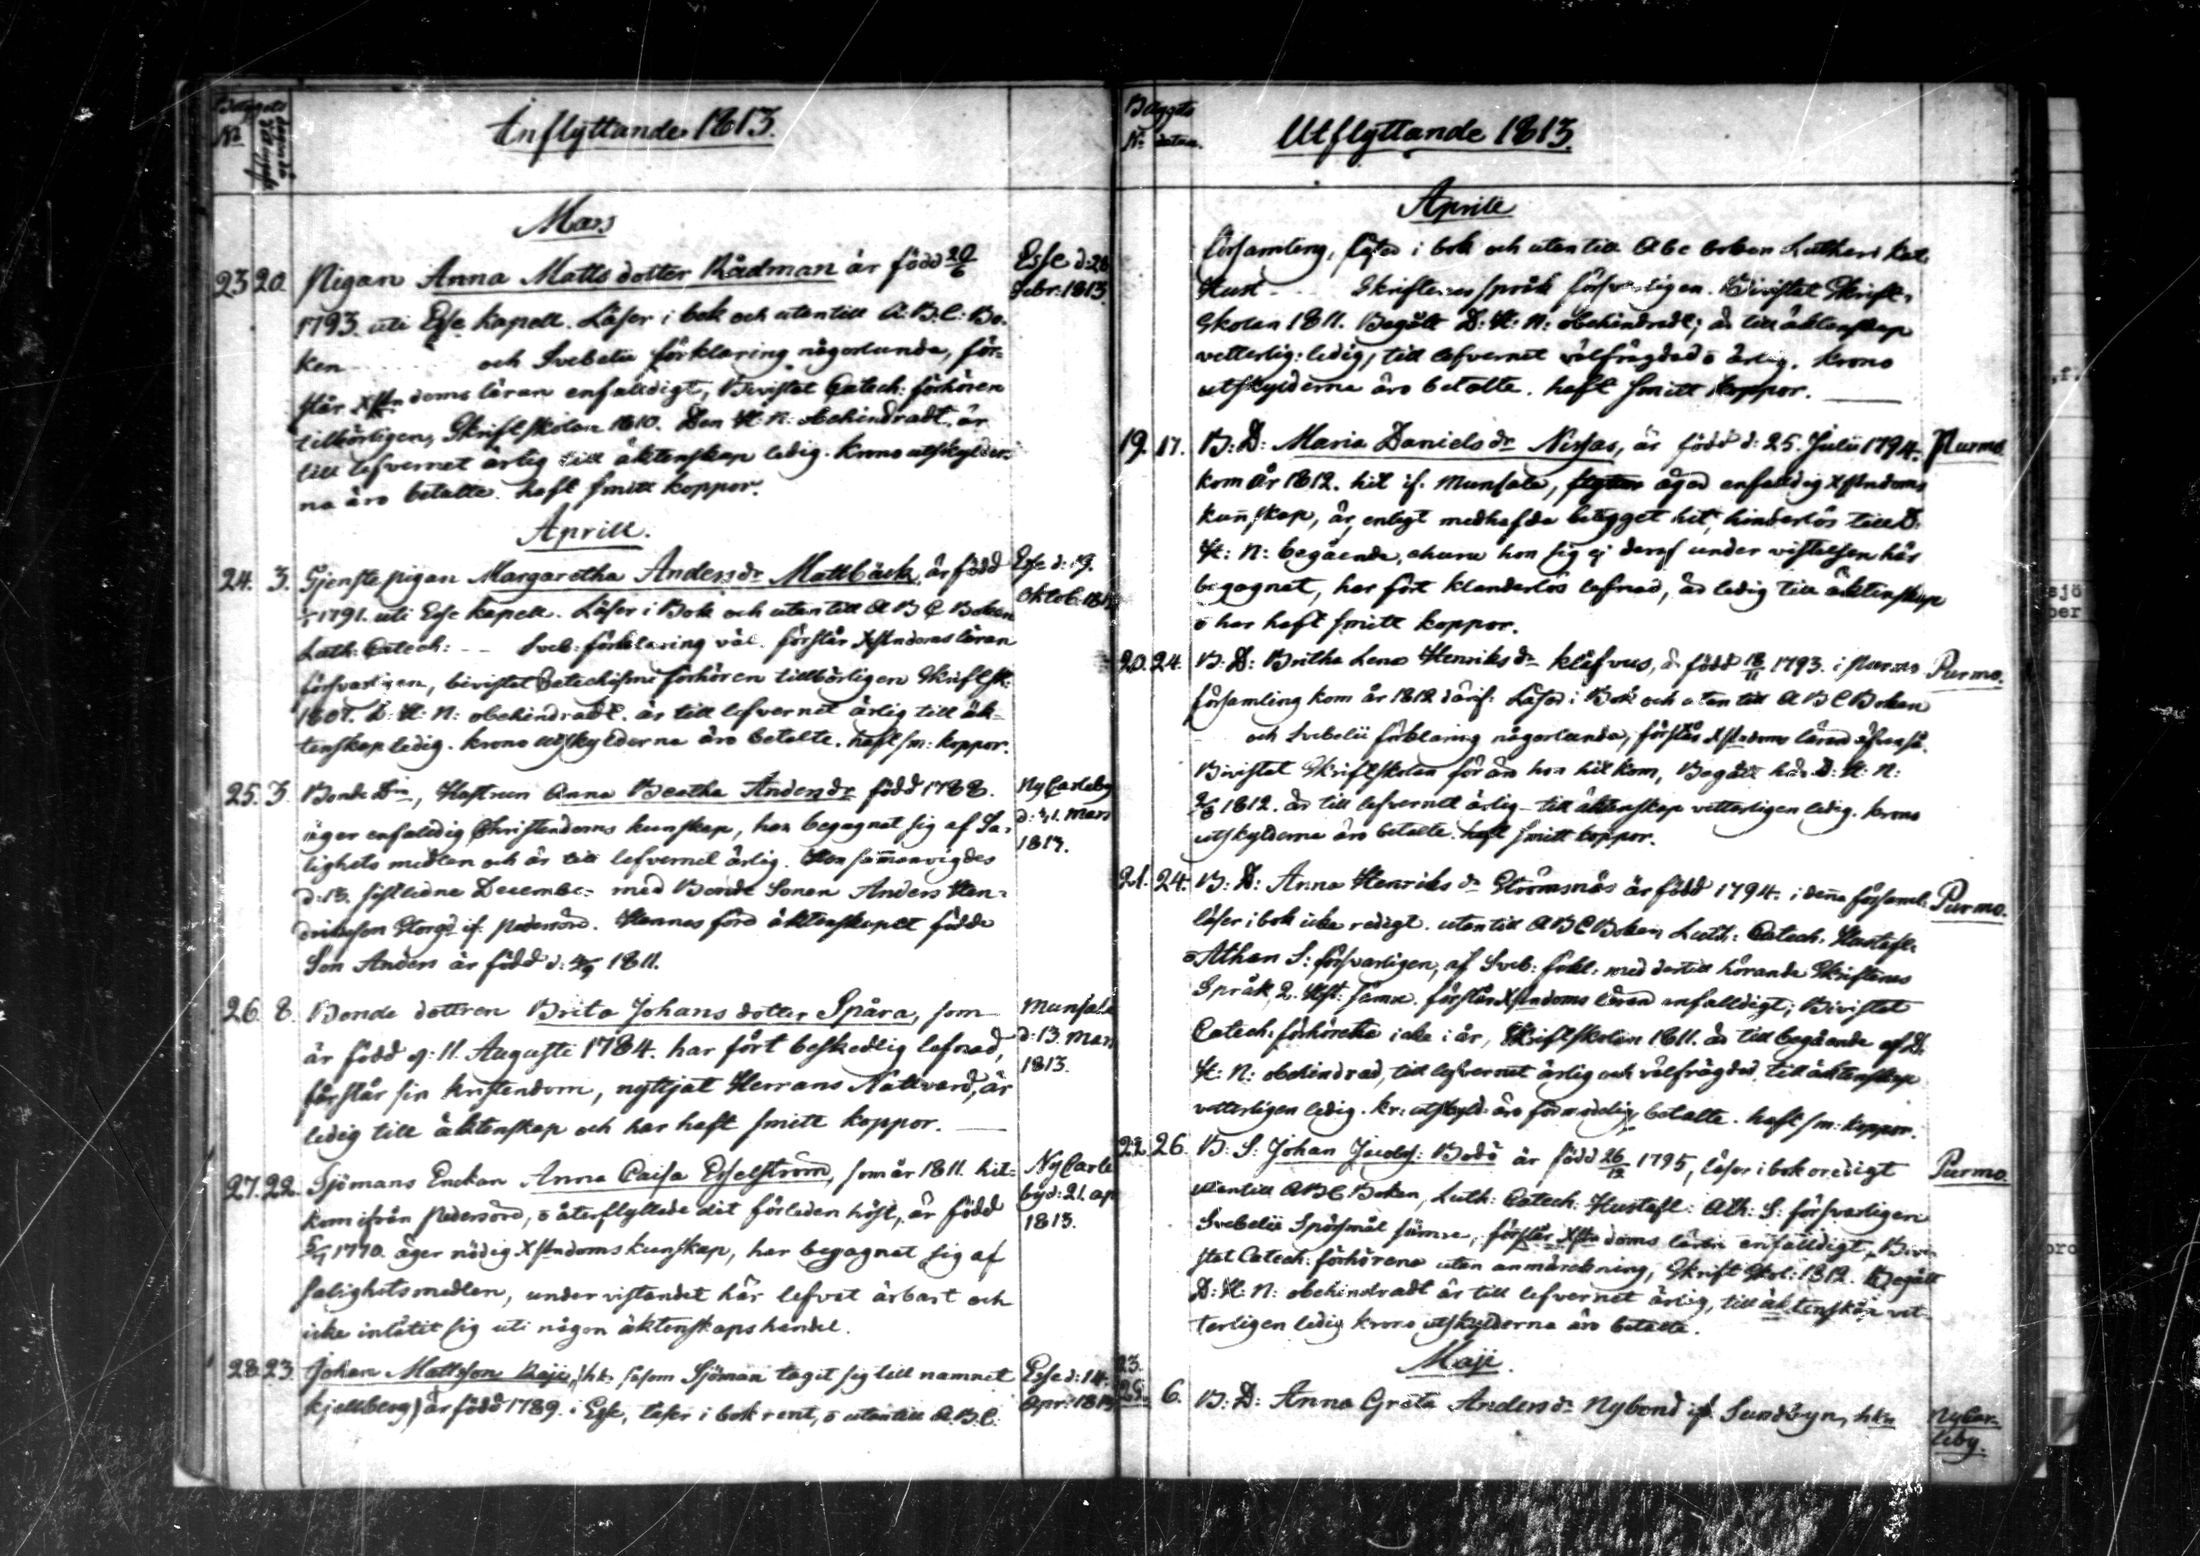 Bilagets
No
Inflyttande 1813.
Mars
23 20 Pigan Anna Matts dotter Rådman är född 20/6 Esse d: 28
1793. uti Esse Kapell. Läser i bok och utantill A.B.C. Bo- Febr: 1813.
ken och Svebelii förklaring någorlunda, för-
står Xstndoms läran enfalldigt, Bivistat Catech: förhören
tillbörligen, Skriftskolan 1810. Den H: N: obehindradt, är
till lefvernet ärlig till äktenskap ledig. Krono utskylder-
na äro betalte. haft smitt koppor.
Aprill.
24. 3. Tjenste pigan Margaretha Andersdr Mattbäck, är född Esse d: 19.
1791. uti Esse Kapell. Läser i Bok och utantill A B C Boken Oktob.
Luth: Catech: -- Sveb: förklaring väl. förstår Xstndoms läran
försvarligen, bivistat Catechismi förhören tillbörligen Skriftsk:
1807. D: H: N: obehindradt. är till lefvernet ärlig till äk-
tenskap ledig. Krono utskylderna äro betalte. haft sm: koppor.
25. 3. Bonde Dn, Hustrun Anna Beatha Andersdr född 1788. NyCarleby
äger enfalldig Christendoms kunskap, har begagnat sig af Sa- d: 31. Mars
lighets medlen och är till lefvernet ärlig. Hon sammanvigdes 1813.
d: 13. sistledne December med Bonde Sonen Anders Hen-
driksson Storgd if. Pedersöre. Hennes före äktenskapet födde
Son Anders är född d: 4/9 1811.
26. 8. Bonde dottren Brita Johans dotter Spåra, som Munsala
är född d: 11. Augusti 1784. har fört beskedlig lefnad, d: 13. Mars
förstår sin kristendom, nyttjat Herrans Nattvard, är 1813.
ledig till äktenskap och har haft smitt koppor.
27. 22. Sjömans Enckan Anna Caisa Esselström, som år 1811. hit- NyCarle
kom ifrån Pedersöre, o återflyttade dit förleden höst, är född by d: 21. ap
1770. äger nödig Xstndoms kunskap, har begagnat sig af 1813.
salighetsmedlen, under vistandet här lefvat ärbart och
icke inlåtit sig uti någon äktenskaps handel.
28. 23. Johan Mattsson (hk såsom Sjöman taget sig till namnet Esse d: 14.
Kjellberg) är född 1789. i Esse, läser i bok rent, o utantill A.B.C. Apr: 1813
Bilagets
No datum.
Utflyttande 1813.
Aprill
församling, läser i bok och utantill Abc boken Lutheri Kat.
Hust - Skriftenes språk försvarligen. Bivistat Skrift-
Skolan 1811. Begått D: H: N: obehindradt; är till äktenskap
vetterlig: ledig, till lefvernet välfrägdad o ärlig. Krono
utskylderna äro betalte. haft smitt koppor.
19. 17. B: D: Maria Daniels dr Nissas, är född d: 25. Julii 1794. Purmo
kom år 1812. hit if. Munsala, äger enfalldig Xstndoms
kunskap, är, enligt medhafda betygget hit, hinderlös till D:
H: N: begående, ehuru hon sig ej deraf under vistelsen här
begagnat, har fört klanderlös lefnad, är ledig till äktenskap
o har haft smitt koppor.
20. 24. B: D: Britha Lena Henriks dr Klåfvus, är född 18/11 1793. i Purmo Purmo.
församling kom år 1812 därif: Läser i Bok och utantill A B C Boken
och Svebelii förklaring någorlunda, förstår Xstndoms läran äfvenså.
Bivistat Skriftskolan förän hon hit kom, Begått här D: H: N:
1812. är till lefvernet ärlig - till äktenskap vetterligen ledig. krono
utskylderna äro betalte. haft smitt koppor.
21. 24. B: D: Anna Henriks dr Strömsnäs är född 1794. i denna församl. Purmo.
läser i bok icke redigt. utantill A B C Boken, Luth: Catech: Hustafl:
Athan S: försvarligen, af Sveb: förkl: med dertill hörande Skriftenes
Språk 2. Hft: sämre. förstår Xstndoms läran enfalldigt; Bivistat
Catech: förhören icke i år, Skriftskolan 1811. är till begående af D:
H: N: obehindrad, till lefvernet ärlig och välfrägdad, till äktenskap
vetterligen ledig. kr: utskyld: äro förmodelig betalte. haft sm: koppor.
22. 26. B: S: Johan Jacobs: Bodö är född 26/12 1795, läser i bok oredigt Purmo.
utantill ABC Boken, Luth: Catech: Hustafl: Ath: S: försvarligen
Svebelii Spörsmål sämre, förstår Xstndoms läran enfalldigt, Bivi-
stat Catech: förhören utan anmärckning, Skrift Skol: 1812. Begått
D: H: N: obehindradt är till lefvernet ärlig, till äktenskap vet-
terligen ledig krono utskylderna äro betalte.
Maji.
23. 6. B: D: Anna Greta Anders dr Nybond if Sundbyn, hkn NyCar-
leby.